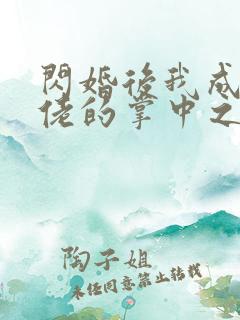 閃婚後我成
佬的掌中之
陶子姐
未经同意禁止转载